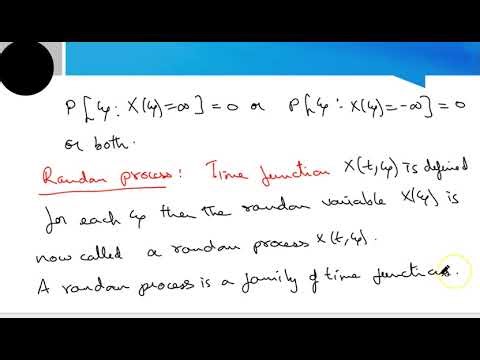 P[ξ: X(ξ)=∞]=0 or P[ξ: X(ξ)=-∞]=0
or both.
Random process: Time function X(t,ξ) is defined
for each ξ then the random variable X(ξ) is
now called a random process X(t,ξ).
A random process is a family of time functions.